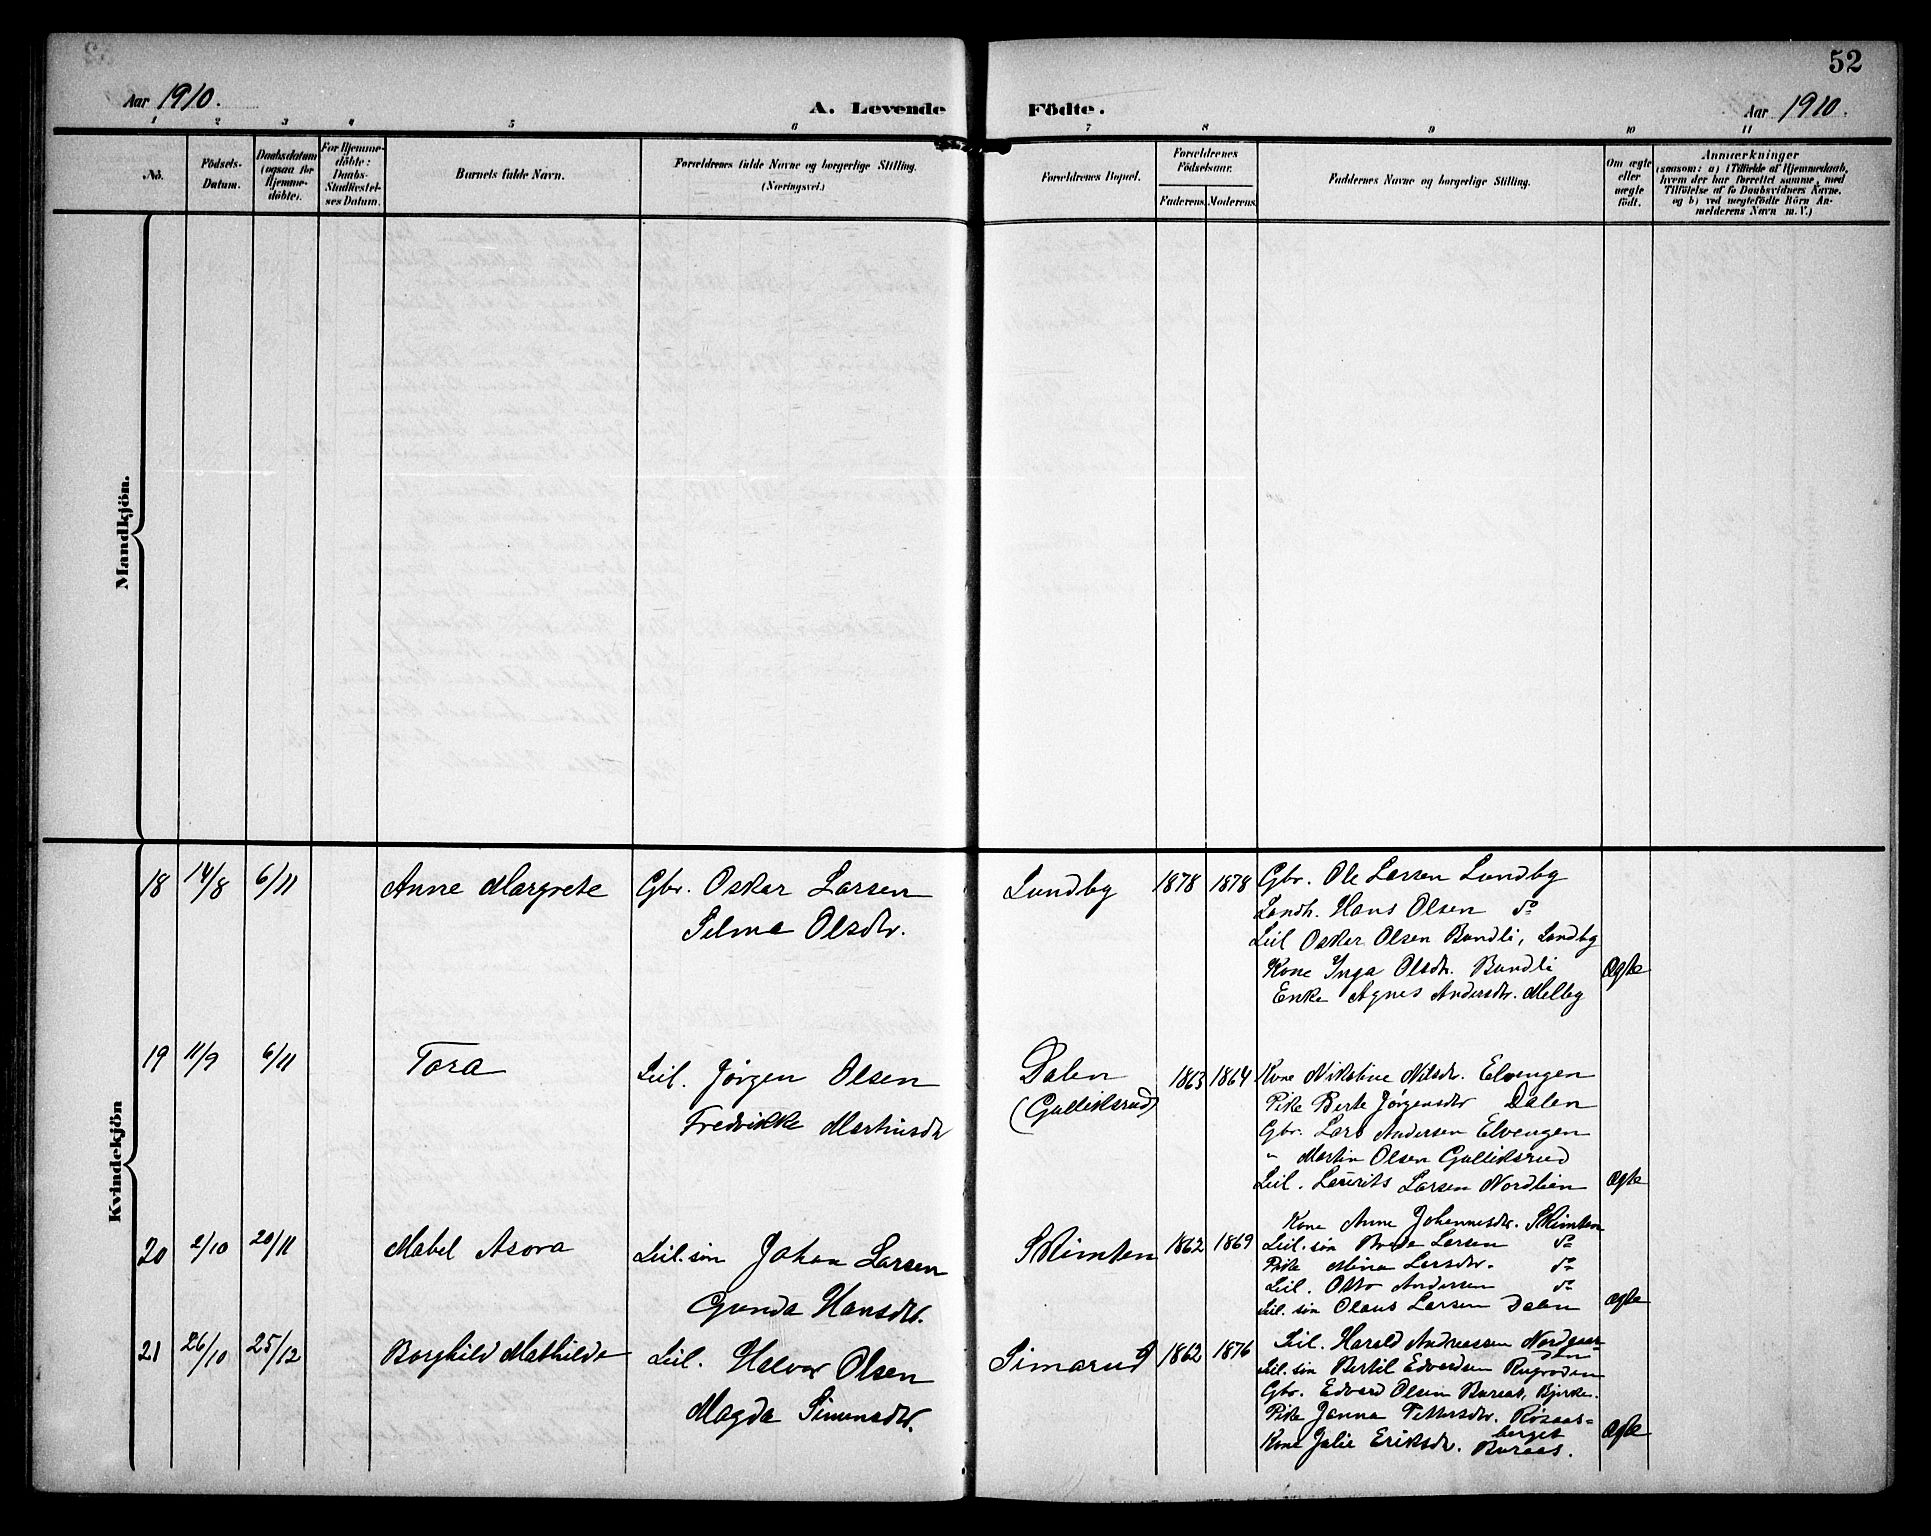 52
Aar 1910.
A. Levende Födte.
Aar 1910.
1 2 3 4 5 6 7 8 9 10 11
No.
Födsels-Datum.
Daabsdatum (ogsaa for Hjemmedöbte).
For Hjemmedöbte: Daabs-Stadfæstelses Datum.
Barnets fulde Navn.
Forældrenes fulde Navne og borgerlige Stilling.
(Næringsvei.)
Forældrenes Bopæl.
Forældrenes Födselsaar.
Faderens. Moderens.
Faddernes Navne og borgerlige Stilling.
Om ægte eller uægte födt.
Anmærkninger
(saasom: a) i Tilfælde af Hjemmedaab,
hvem der har forrettet samme, med
Tilföielse af to Daabsvidners Navne.
og b) ved uægtefödte Börn An-
melderens Navn m. V.)
Mandkjön.
Kvindekjön
18 14/8 6/11 Anne Margrete Gbr. Oskar Larsen Lundby 1878 1878 Gbr. Ole Larsen Lundby
Landh. Hans Olsen do
Selma Olsdtr.
Leil Oskar Olsen Bundli, Lundby
Kone Inga Olsdtr. Bundli Ægte
Enke Agnes Andersdtr. Melby
19 11/9 6/11 Tora Leil. Jørgen Olsen Dalen 1863 1864 Kone Nikoline Nilsdtr. Elvengen
(Gulliksrud) Pike Berte Jørgensdtr Dalen
Fredrikke Martinsdtr Gbr. Lars Andersen Elvengen
" Martin Olsen Gulliksrud
Leil. Laurits Larsen Nordlien Ægte
Kone Anne Johannesdtr. Skimten
20 2/10 20/11 Mabel Asora Leil.søn Johan Larsen Skimten 1862 1869 Leil.søn Brede Larsen do
Pike Mina Larsdtr. do
Leil. Otto Andersen do
Gunda Hansdtr. Leil.søn Olaus Larsen Dalen Ægte
21 26/10 25/12 Borghild Mathilde Leil. Halvor Olsen Simarud 1862 1876 Leil. Harald Andreassen Nordgaar-
den
Leil.søn Bertil Edvardsen
Gbr. Edvard Olsen Buraas, Bjerke.
Magda Simensdtr. Pike Janna Pettersdtr. Røsaas-
berget
Kone Julie Eriksdtr. Buraas. Ægte